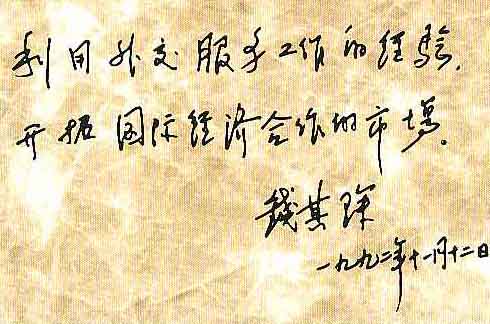 利用外交服务工作的经验，
开拓国际经济合作的市场。
钱其琛
一九九二年十一月十二日